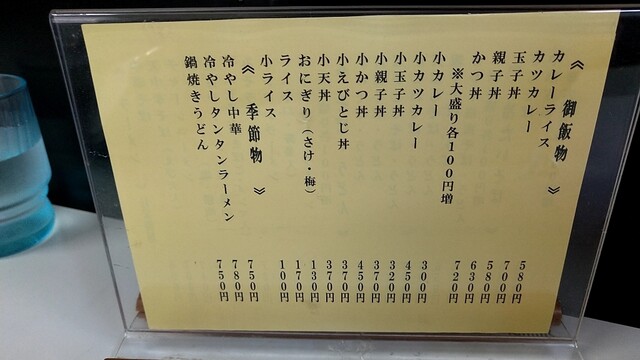 《 御飯物 》
カレーライス 580円
カツカレー 700円
玉子丼 580円
親子丼 630円
かつ丼 720円
※大盛り各100円増
小カレー 300円
小カツカレー 450円
小玉子丼 320円
小親子丼 370円
小かつ丼 450円
小えびとじ丼 370円
小天丼 370円
おにぎり(さけ・梅) 130円
ライス 170円
小ライス 100円
《 季節物 》
冷やし中華 750円
冷やしタンタンラーメン 780円
鍋焼きうどん 750円